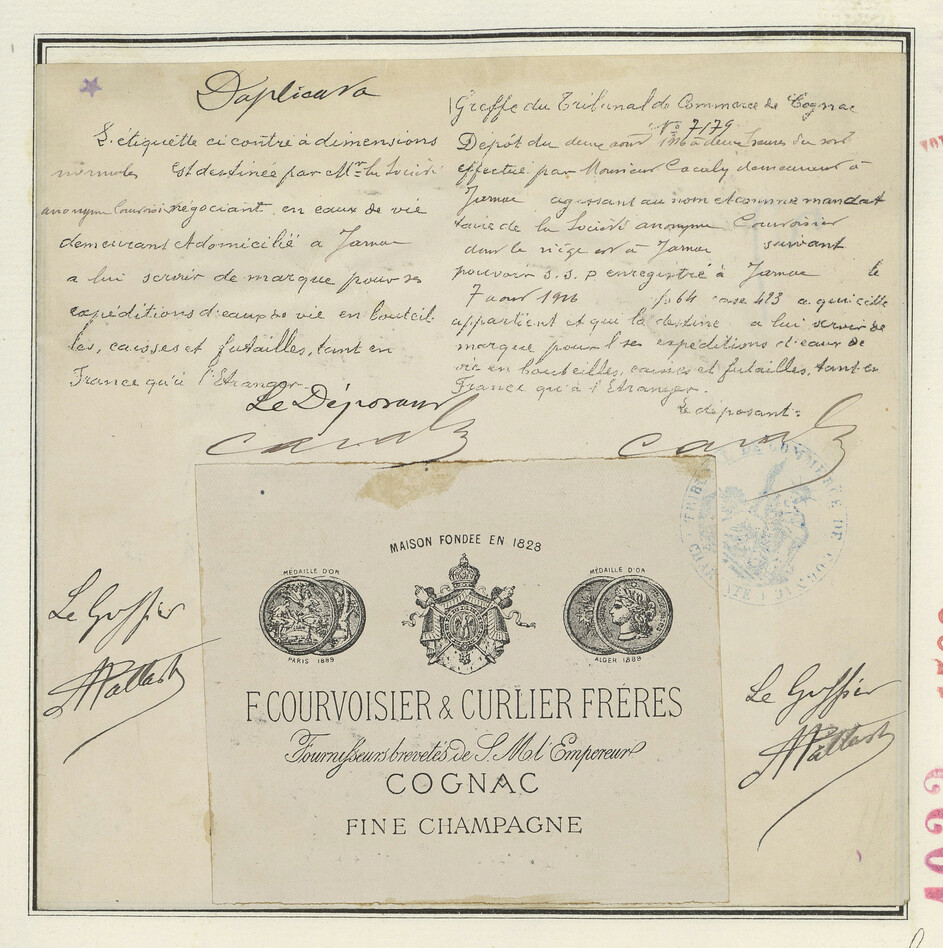 Duplicata
L'étiquette ci contre à dimensions
normales Est destinée par Mr. la Société
anonyme Courvoisier négociant en eaux de vie
demeurant et domicilié a Jarnac
a lui servir de marque pour ses
expéditions d'eaux de vie en bouteil
les, caisses et futailles, tant en
France qu'à l'Etranger
Le Déposant
Greffe du Tribunal de Commerce de Cognac
No 7179
Dépôt du deux aout 1916 à deux heures du soir
effectué par Monsieur demeurant à
Jarnac agissant au nom et comme mandat
taire de la Société anonyme Courvoisier
dont le siège est à Jarnac suivant
pouvoir s.s.p enregistré à Jarnac le
7 aout 1916 fo 64 case 423 a qui elle
appartient et qui la destine a lui servir de
marque pour ses expéditions d'eaux de
vie en bouteilles, caisses et futailles, tant en
France qu'à l'Etranger.
Le déposant:
TRIBUNAL DE COMMERCE DE COGNAC
CHARENTE
MAISON FONDEE EN 1828
MÉDAILLE D'OR
PARIS 1889
MÉDAILLE D'OR
ALGER 1888
F. COURVOISIER & CURLIER FRÉRES
Fournisseurs brevetés de S. M. l'Empereur
COGNAC
FINE CHAMPAGNE
Le Greffier
Le Greffier